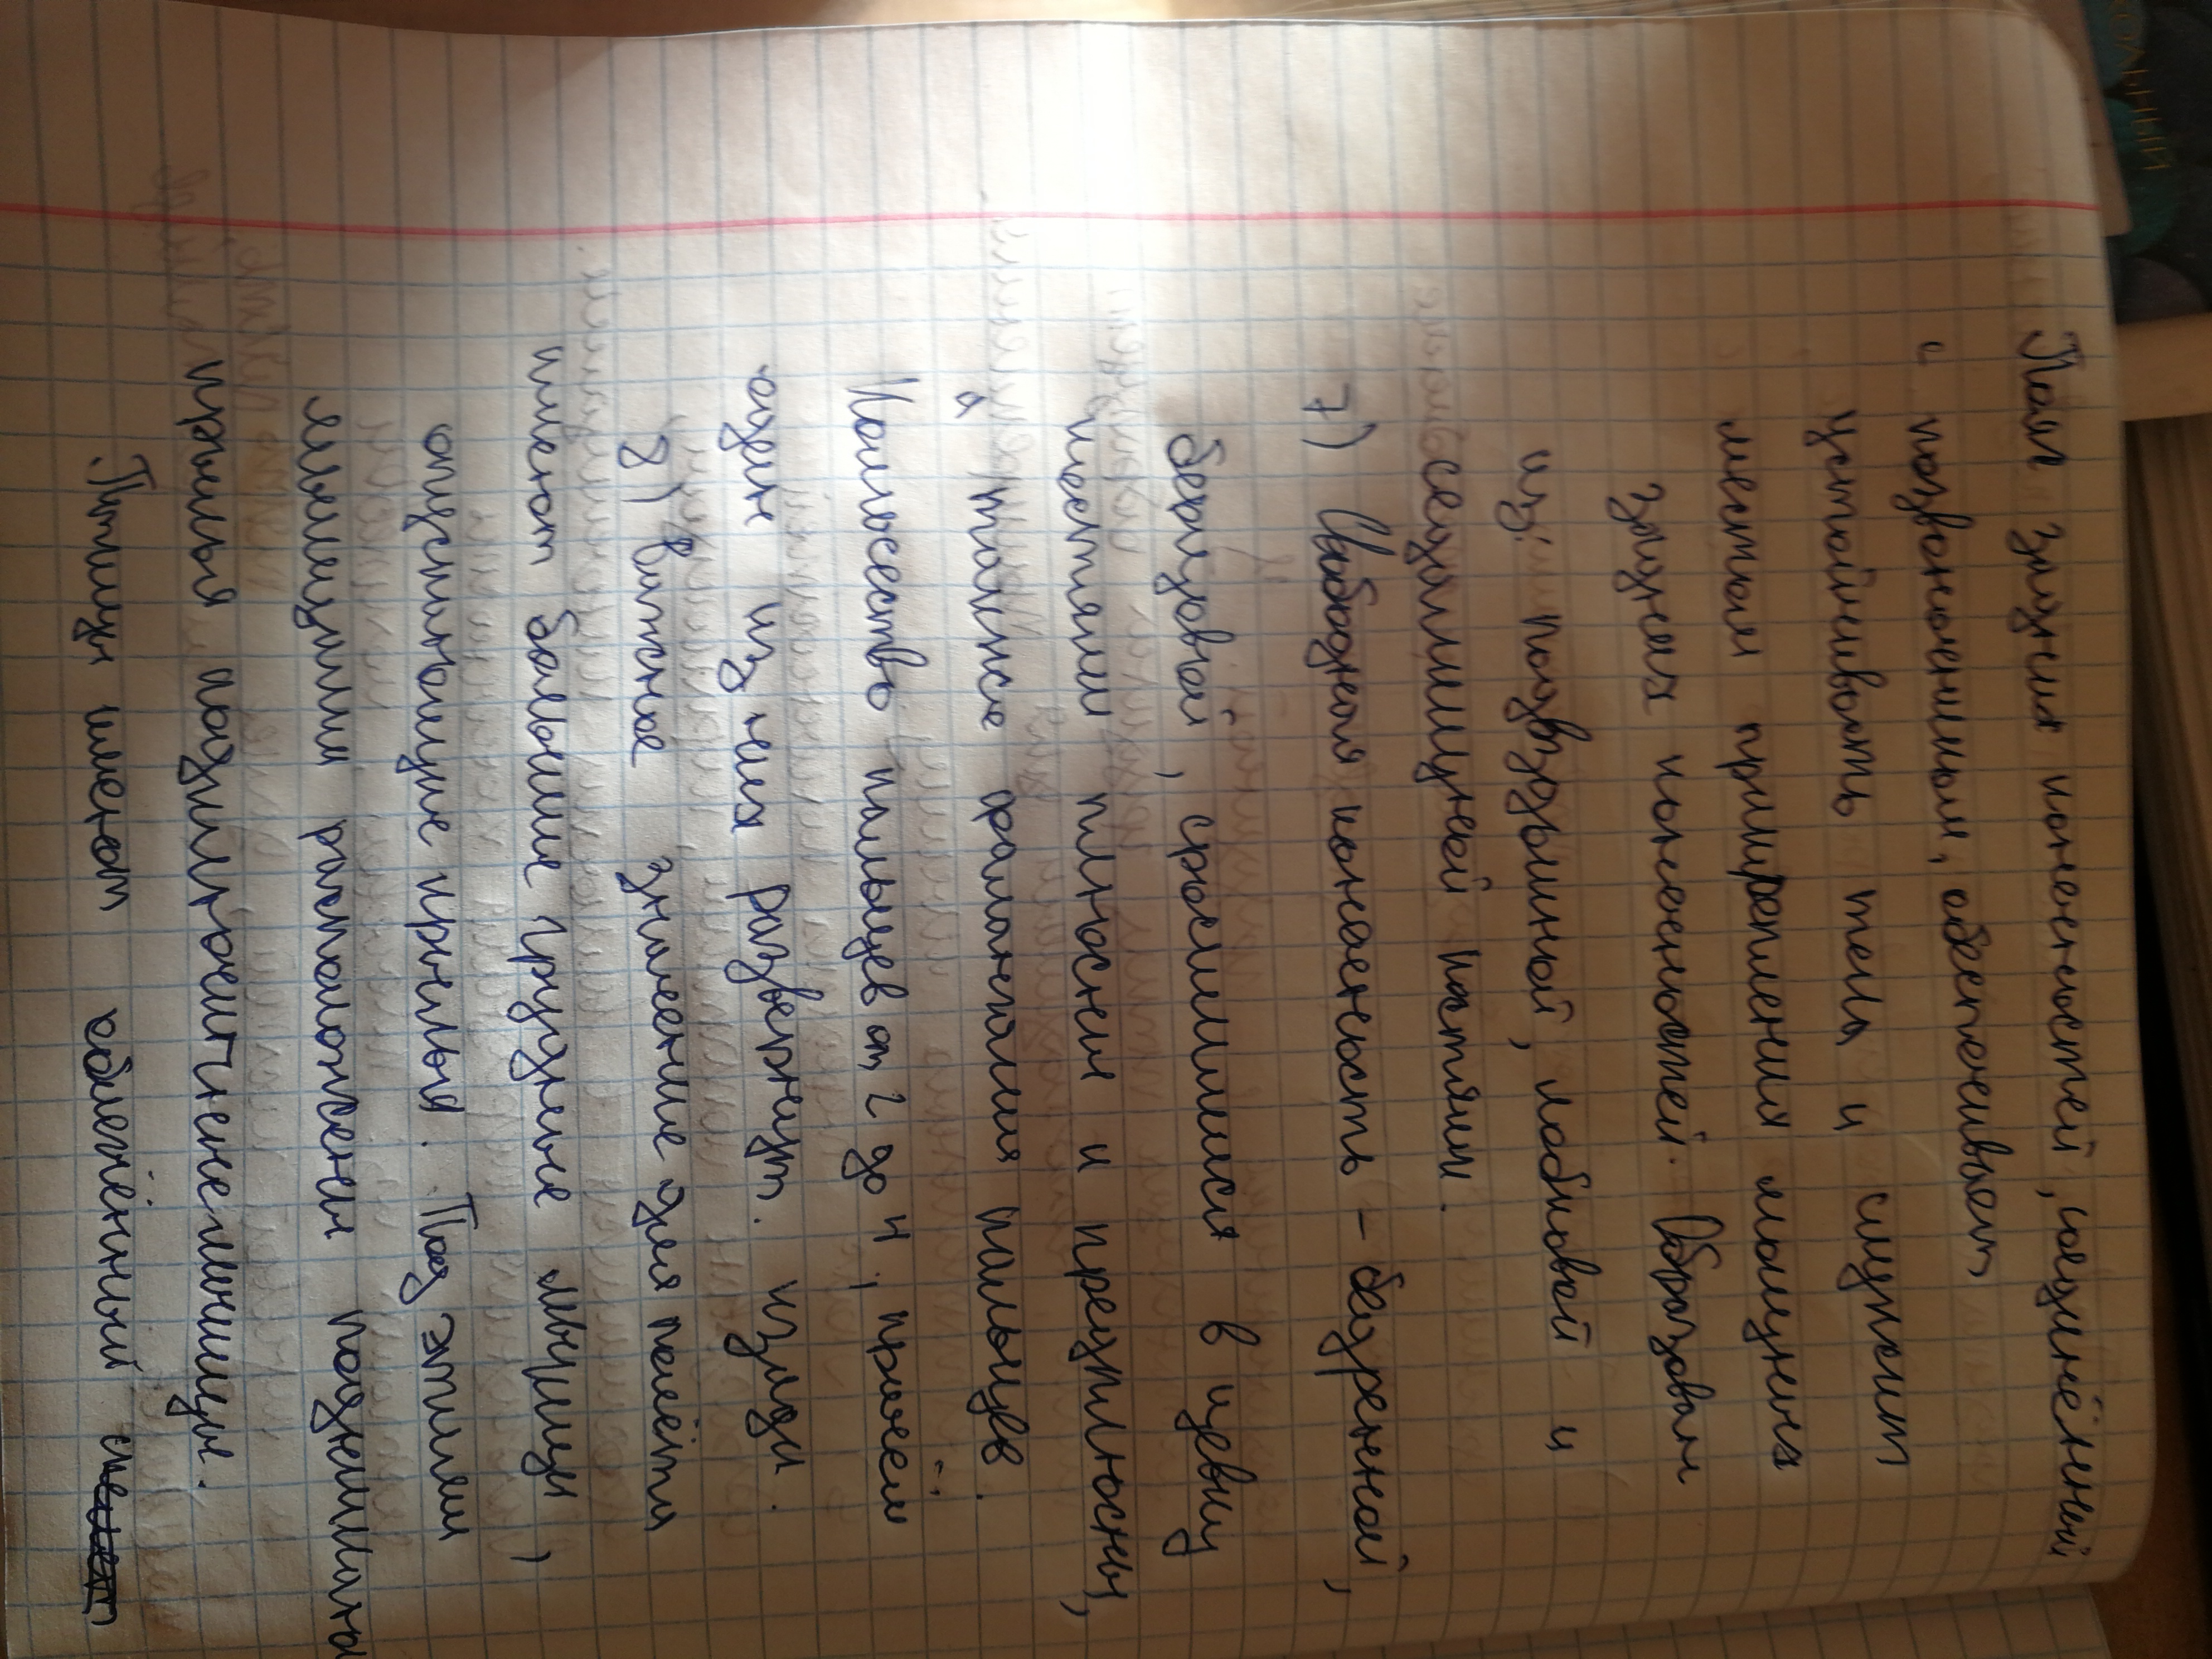 Пояс задних конечностей, соединённый
с позвоночником, обеспечивает
устойчивость тела и служит
местом прикрепления мышечных
задних конечностей. Образован
из подвздошной, лобковой и
седалищной костями.
7) Свободная конечность - бедренной,
берцовой, сросшимися в цевку
костями плюсны и предплюсны,
а также фалангами пальцев.
Количество пальцев от 2 до 4, причем
один из них развернут. назад.
8) Важное значение для полёта
имеют большие грудные мышцы,
опускающие крылья. Под этими
мышцами расположены поднимающие
крылья подключичные мышцы.
Птицы имеют облегчённый ске
ОЛЬНЫЙ